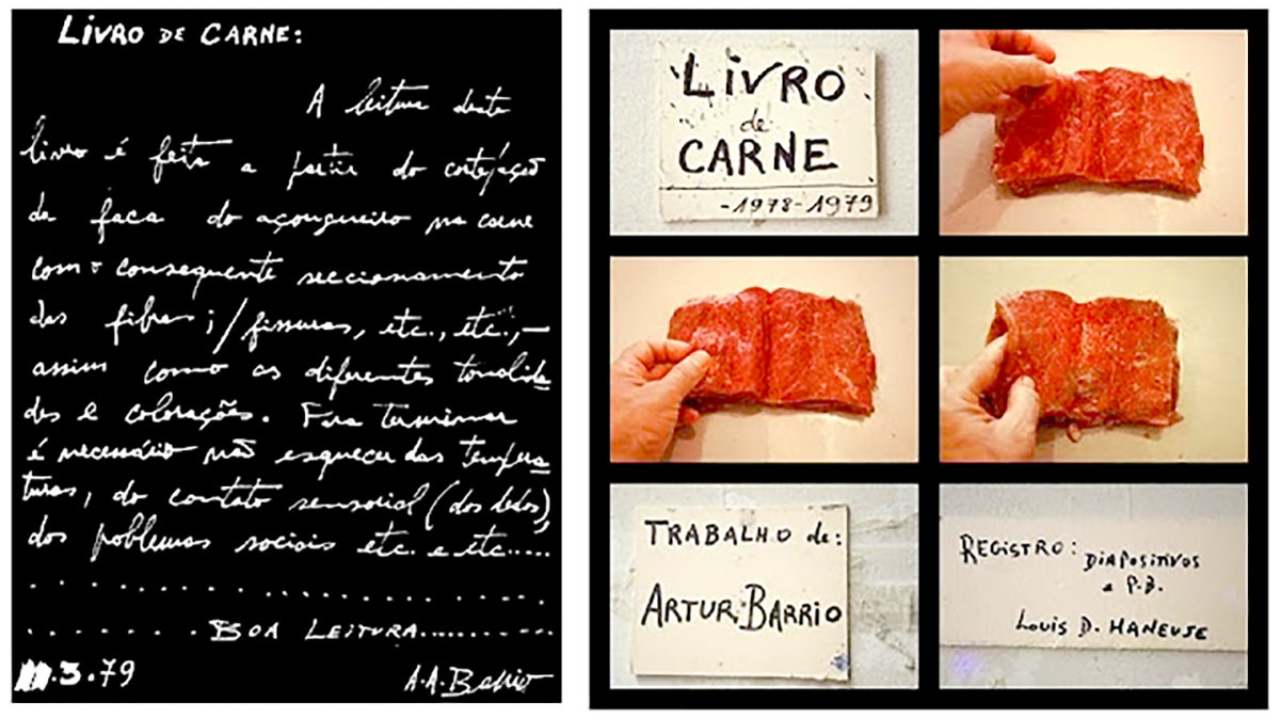 LIVRO DE CARNE:
A leitura deste
livro é feita a partir do corte/ação
da faca do açougueiro na carne
com o consequente seccionamento
das fibras; / fissuras, etc., etc., —
assim como as diferentes tonalida
des e colorações. Para terminar
é necessário não esquecer das tempera
turas, do contato sensorial (dos dedos),
dos problemas sociais etc. e etc.....
. . . . . . . . . . . . . . . .
. . . . . . . BOA LEITURA..........
.3.79
A.A.Barrio
LIVRO
de
CARNE
-1978-1979
TRABALHO de:
ARTUR BARRIO
REGISTRO: DIAPOSITIVOS
e P.B.
Louis D. HANEUSE